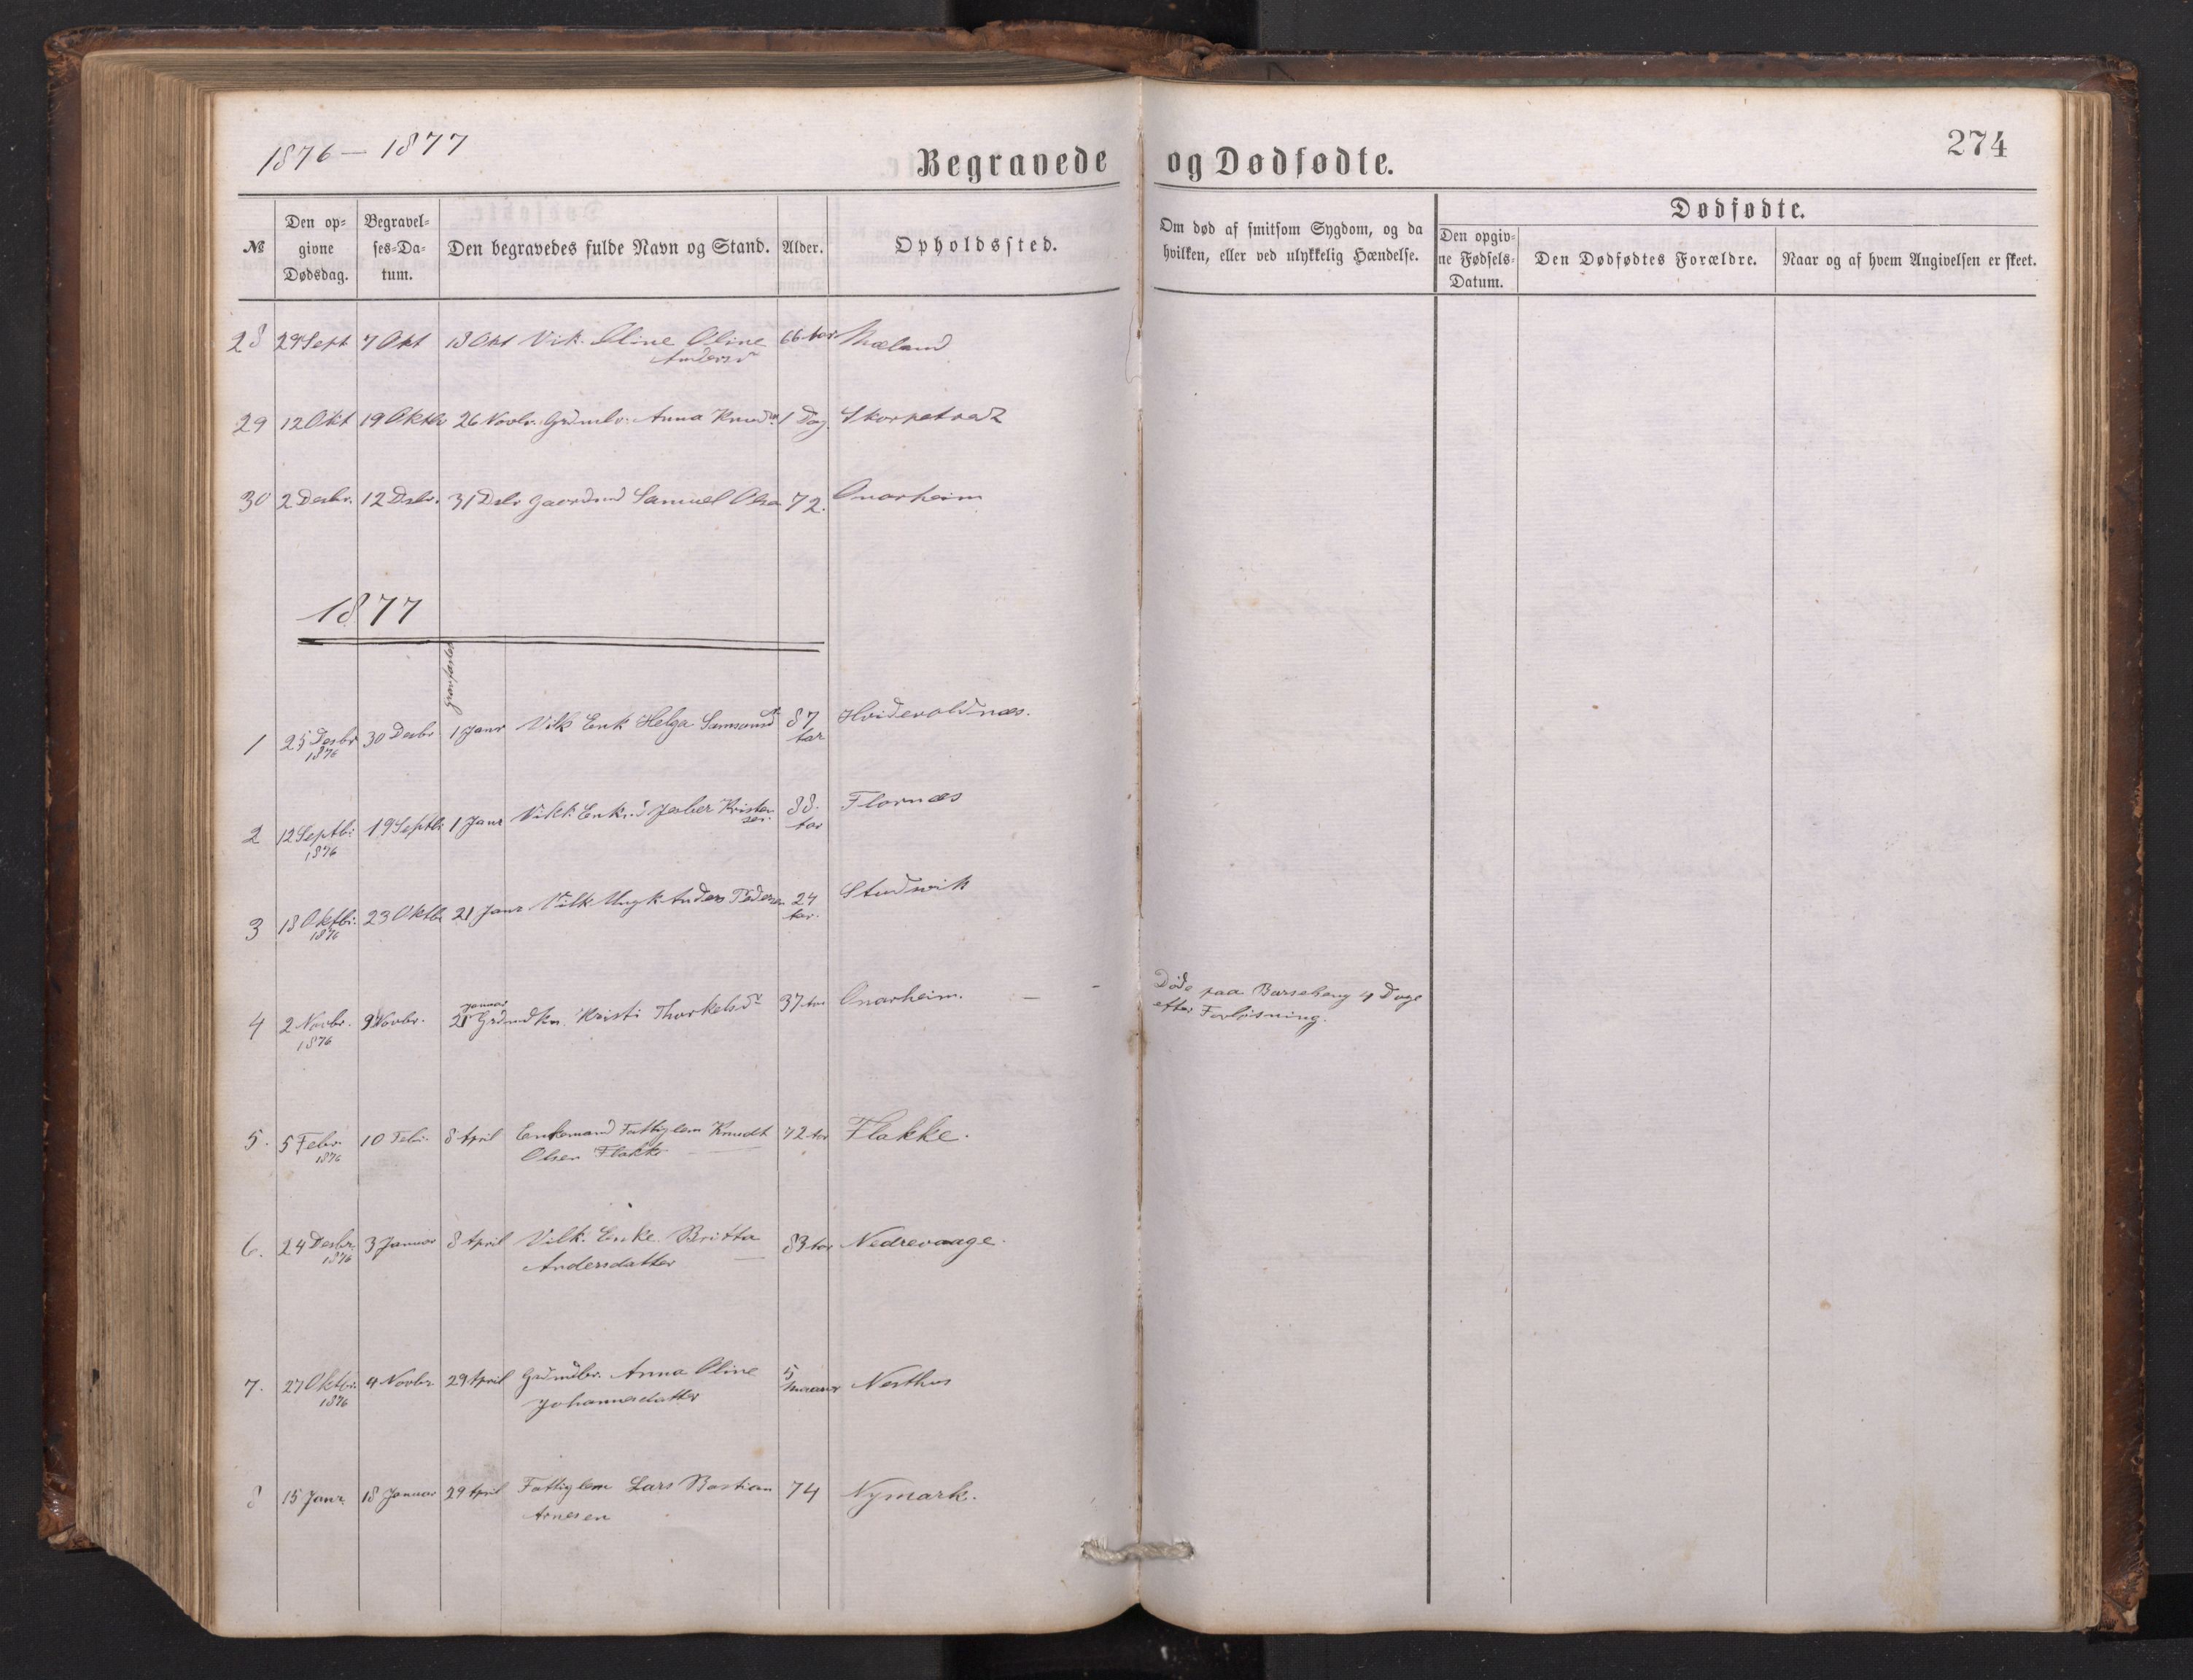 1876 — 1877
Begravede og Dødfødte.
274
№
Den opgivne Dødsdag.
Begravelses-Datum.
Den begravedes fulde Navn og Stand.
Alder.
Opholdssted.
Om død af smitsom Sygdom, og da hvilken, eller ved ulykkelig Hændelse.
Dødfødte.
Den opgivne Fødsels-Datum.
Den Dødfødtes Forældre.
Naar og af hvem Angivelsen er skeet.
28 29 Sept 7 Okt 18 Okt Oline Andersd 66 Mæland
29 12 Okt 19 Oktb 26 Novbr. Grdmbr. Anna Knudsd 1 Dag Skorpetræd
30 2 Desbr. 12 Desbr. 31 Dsbr Gaardmd Samuel Olsen 72. Onarheim
1877
1 25 Desbr 1876 30 Desbr 1 Janr Vilk Enk Helga Samsonsd 87 aar Hvideroldnæs.
2 12 Septbr: 1876 19 Septbr 1 Janr Vilk: Enkmd Jesber Kristensen. 88. aar Flornæs
3 18 Oktbr: 1876 23 Oktbr 21 Janr Vilk Ungk Anders Pedersen 24 aar. Studvik
4 2 Novbr. 1876 9 Novbr. 21 Januar Grdmdkn. Kristi Thorkelsdr 37 aar Onarheim. — Døde paa Barseseng 4 Dage
efter Forløsning.
5. 5 Febr. 1876 10 Febr. 8 April Enkemand Fattiglem Knudt
Olsen Flakke 72 aar Flakke.
6. 24 Desbr. 1876 3 Januar 8 April Vilk: Enke Britta
Andersdatter 83 aar Nedrevaage.
7. 27 Oktbr. 1876 4 Novbr 29 April Grdmdbr. Anna Oline
Johannesdatter 5 maaner Nesthus
8 15 Janr. 18 Januar 29 April Fattiglem Lars Bastian
Arnesen 74 Nymark.